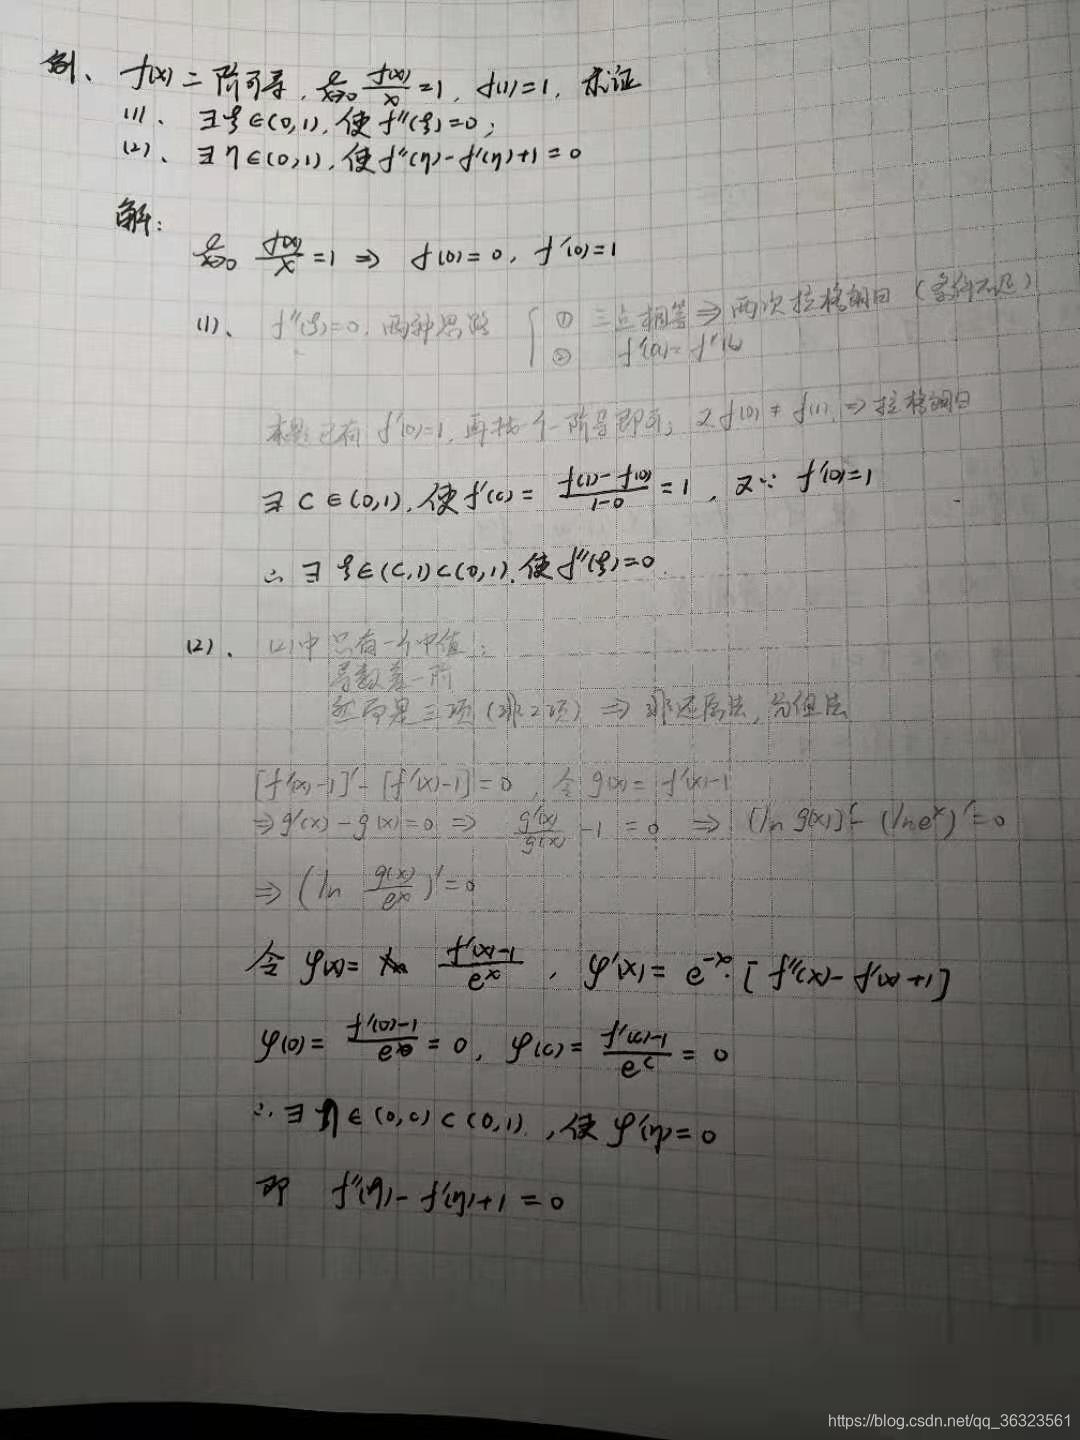 例、 f(x)二阶可导, lim x→0 f(x)/x =1, f(1)=1, 求证
(1)、 ∃ξ∈(0,1), 使f''(ξ)=0;
(2)、 ∃η∈(0,1), 使f''(η)-f'(η)+1=0
解:
lim x→0 f(x)/x =1 ⇒ f(0)=0, f'(0)=1
(1)、 f''(ξ)=0, 两种思路 { ① 三点相等⇒两次拉格朗日 (条件不足)
② f'(a)=f'(b
本题已有 f'(0)=1, 再找一个一阶导即可; 又f(0)≠f(1), ⇒拉格朗日
∃ C∈(0,1), 使f'(c)= f(1)-f(0)/1-0 =1, 又∵ f'(0)=1
∴ ∃ ξ∈(C,1)⊂(0,1), 使f''(ξ)=0.
(2)、 (2)中只有一个中值;
导数差一阶
然而是三项(非2项) ⇒ 非还原法,
[f'(x)-1]'-[f'(x)-1]=0, 令g(x)=f'(x)-1
⇒g'(x)-g(x)=0 ⇒ g'(x)/g(x) -1 =0 ⇒ [ln g(x)]'-(lne^x)'=0
⇒ (ln g(x)/e^x)'=0
令 φ(x)= f'(x)-1/e^x , φ'(x)= e^-x·[f''(x)-f'(x)+1]
φ(0)= f'(0)-1/e^0 =0, φ(c)= f'(c)-1/e^c = 0
∴ ∃ η∈(0,c)⊂(0,1), 使φ'(η)=0
即 f''(η)-f'(η)+1=0
https://blog.csdn.net/qq_36323561